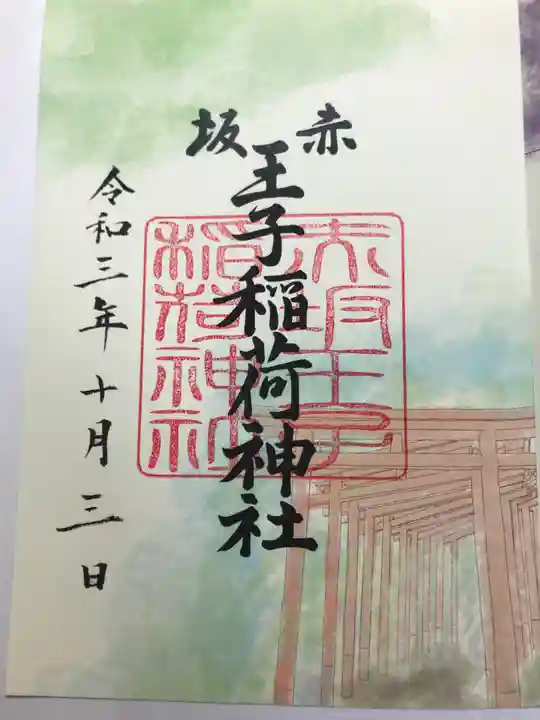 赤坂
王子稲荷神社
令和三年十月三日
赤坂王子
稲荷神社